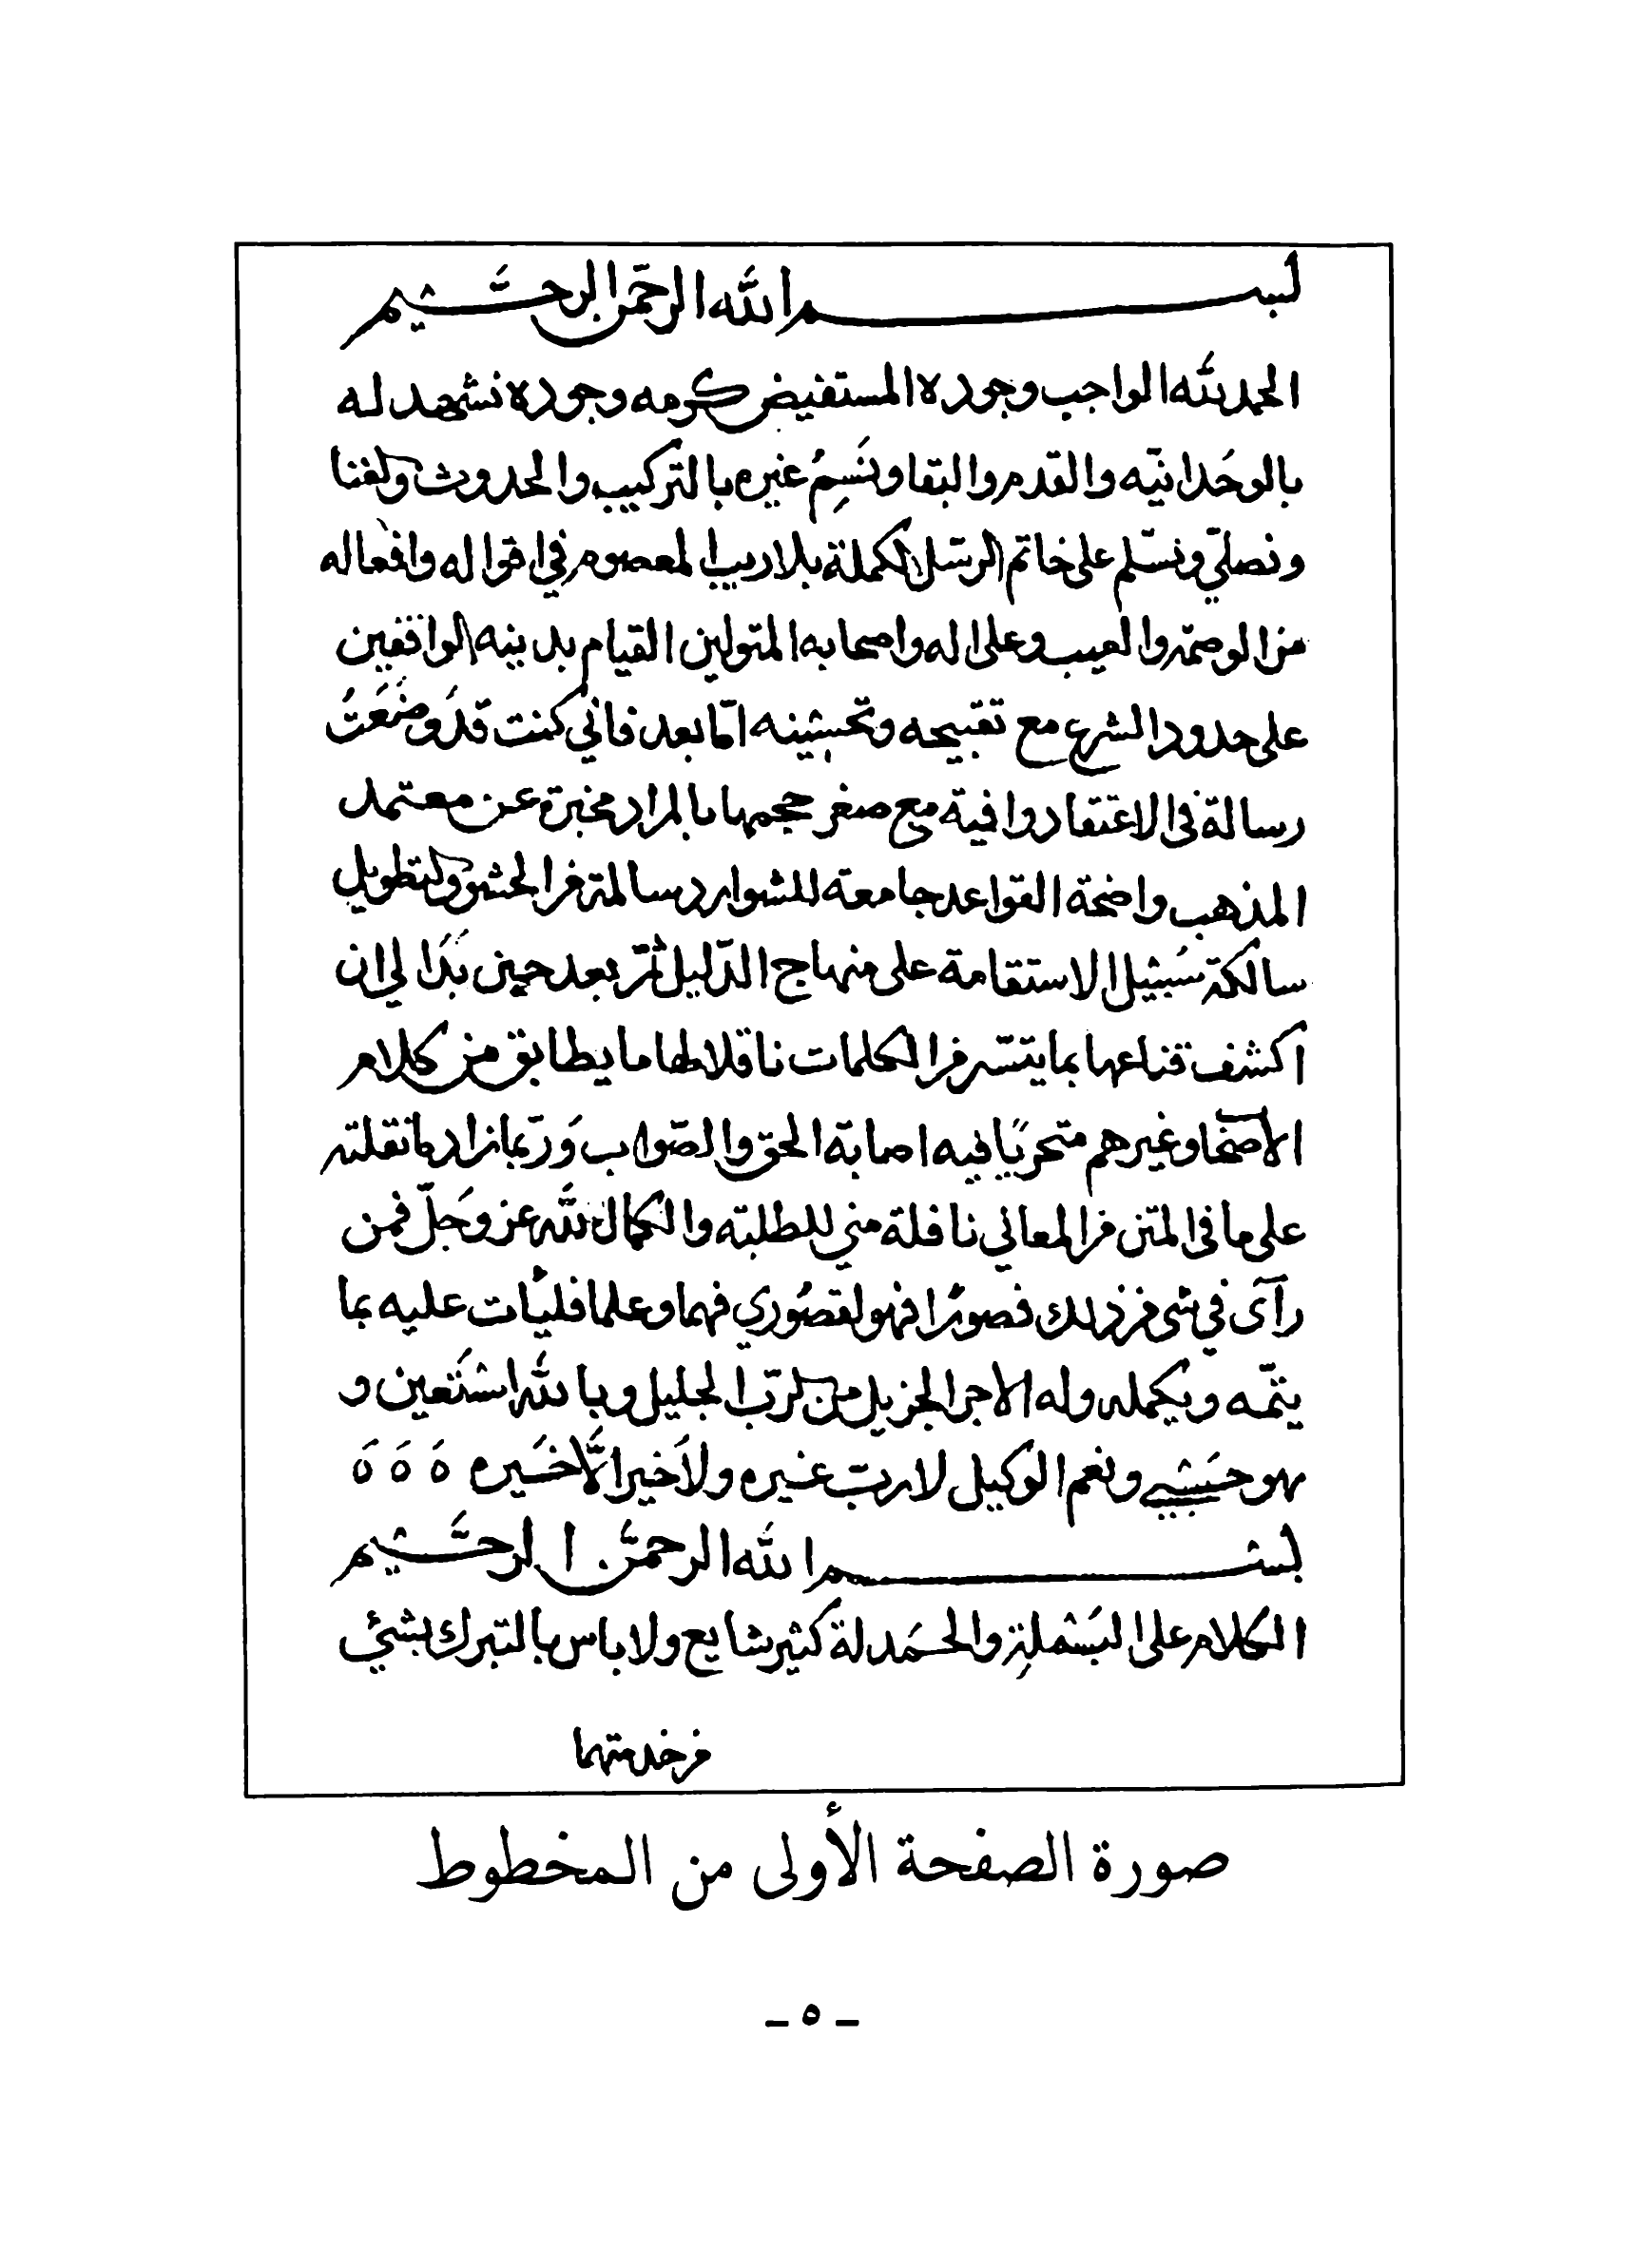 بسم الله الرحمن الرحيم
الحمد لله الواجب وجوده المستفيض كرمه وجوده نشهد له
بالوحدانيّه والقدم والبقا ونَسِمُ غيره بالتركيب والحدوث والفنا
ونصلّي ونسّلم على خاتم الرسّل الكملة بلا ريب المعصوم في اقواله وافعاله
من الوصمة والعيب وعلى اله واصحابه المتولين القيام بدينه الواقفين
على حدود الشرع مع تقبيحه وتحسينه امّا بعد فاني كنت قد وضَعَتُ
رسالة في الاعتقاد وافية مع صغر حجمها بالمراد مخبرة عن معتمد
المذهب واضحة القواعد جامعة للشوارد سالمة من الحشو والتطويل
سالكة سَبيل الاستقامة على منهاج الدّليل ثمّ بعد حين بَدَا لي ان
اكشف قناعها بما يتسّر من الكلمات ناقلا لها ما يطابق من كلام
الأصحاب وغيرهم متحريًا فيه اصابة الحق والصّواب وَربّما زاد ما نقلته
على ما في المتن من المعاني نافلة مني للطلبة والكمال لله عز وجَلّ فمن
رآى في شى من ذلك قصورًا فهو لقصُوري فهما وعلما فليَأت عليه بما
يتمّه ويكمله وله الاجر الجزيل من الربّ الجليل وبالله استَعين و
هو حسَبي ونعم الوكيل لا ربّ غيره ولا خير الّا خَيره ه ه ه
بسم الله الرحمن الرحيم
الكلام على البَسْملة والحَمدلة كثير شايع ولا باس بالتبرك بشئ
من خدمتهما
صورة الصفحة الأولى من المخطوط
- ٥ -